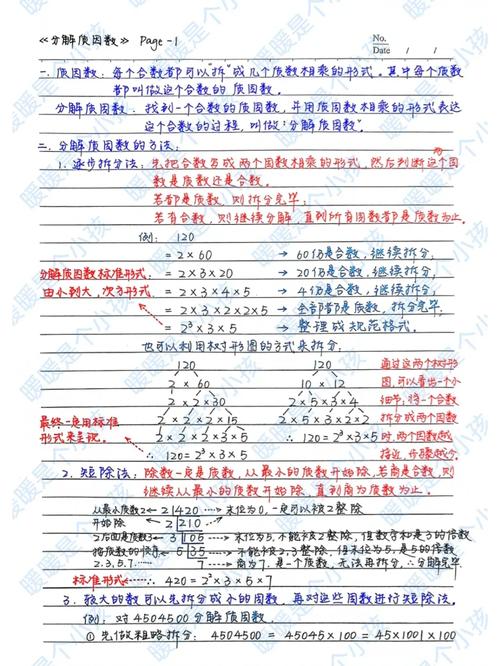 《分解质因数》 Page-1
No.
Date / /
一. 质因数：每个合数都可以"拆"成几个质数相乘的形式。其中每个质数
都叫做这个合数的 质因数.
分解质因数：找到一个合数的质因数，并用质因数相乘的形式表达
这个合数的过程. 叫做:"分解质因数".
二. 分解质因数的方法:
1. 逐步拆分法: 先把合数写成两个因数相乘的形式，然后判断这两个因
数是质数还是合数。
若都是质数，则拆分完毕;
若有合数，则继续分解，直到所有因数都是质数为止。
例: 120
= 2×60 → 60仍是合数，继续拆分;
分解质因数标准形式: = 2×3×20 → 20仍是合数，继续拆分;
由小到大，次方形式. = 2×3×4×5 → 4仍是合数，继续拆分;
= 2×3×2×2×5 → 全部都是质数，拆分完毕;
= 2³×3×5 → 整理成规范格式。
也可以利用树形图的方式来拆分:
120 120 通过这两个树形
2 × 60 10 × 12 图，可以看出一个小
2×2×30 2×5×3×4 细节: 将一个合数
最终一定用标准 2×2×2×3×5 2×5×3×2×2 拆分成两个因数
形式来呈现. ∴ 120=2³×3×5 ∴ 120=2³×3×5 时，两个因数越
接近，步骤越少.
2. 短除法: 除数一定是质数，从最小的质数开始除，若商是合数，则
继续从最小的质数开始除，直到商为质数为止。
从最小质数2 ← 2 420 → 末位为0，一定可以被2整除
开始除 ← 2 210
2后面是质数3 ← 3 105 → 末位为5，不能被2整除，但数字和是3的倍数
按质数的顺序 ← 5 35 → 不能被2,3整除，但末位为5，是5的倍数
2.3.5.7. 7 → 商为7，是一个质数，无法再拆分，∴分解完毕
标准形式 ← ∴ 420 = 2²×3×5×7
3. 较大的数可以先拆分成小的因数，再对这些因数进行短除法。
例: 对4504500分解质因数.
① 先做粗略拆分: 4504500 = 45045×100 = 45×1001×100
暖暖是个小孩